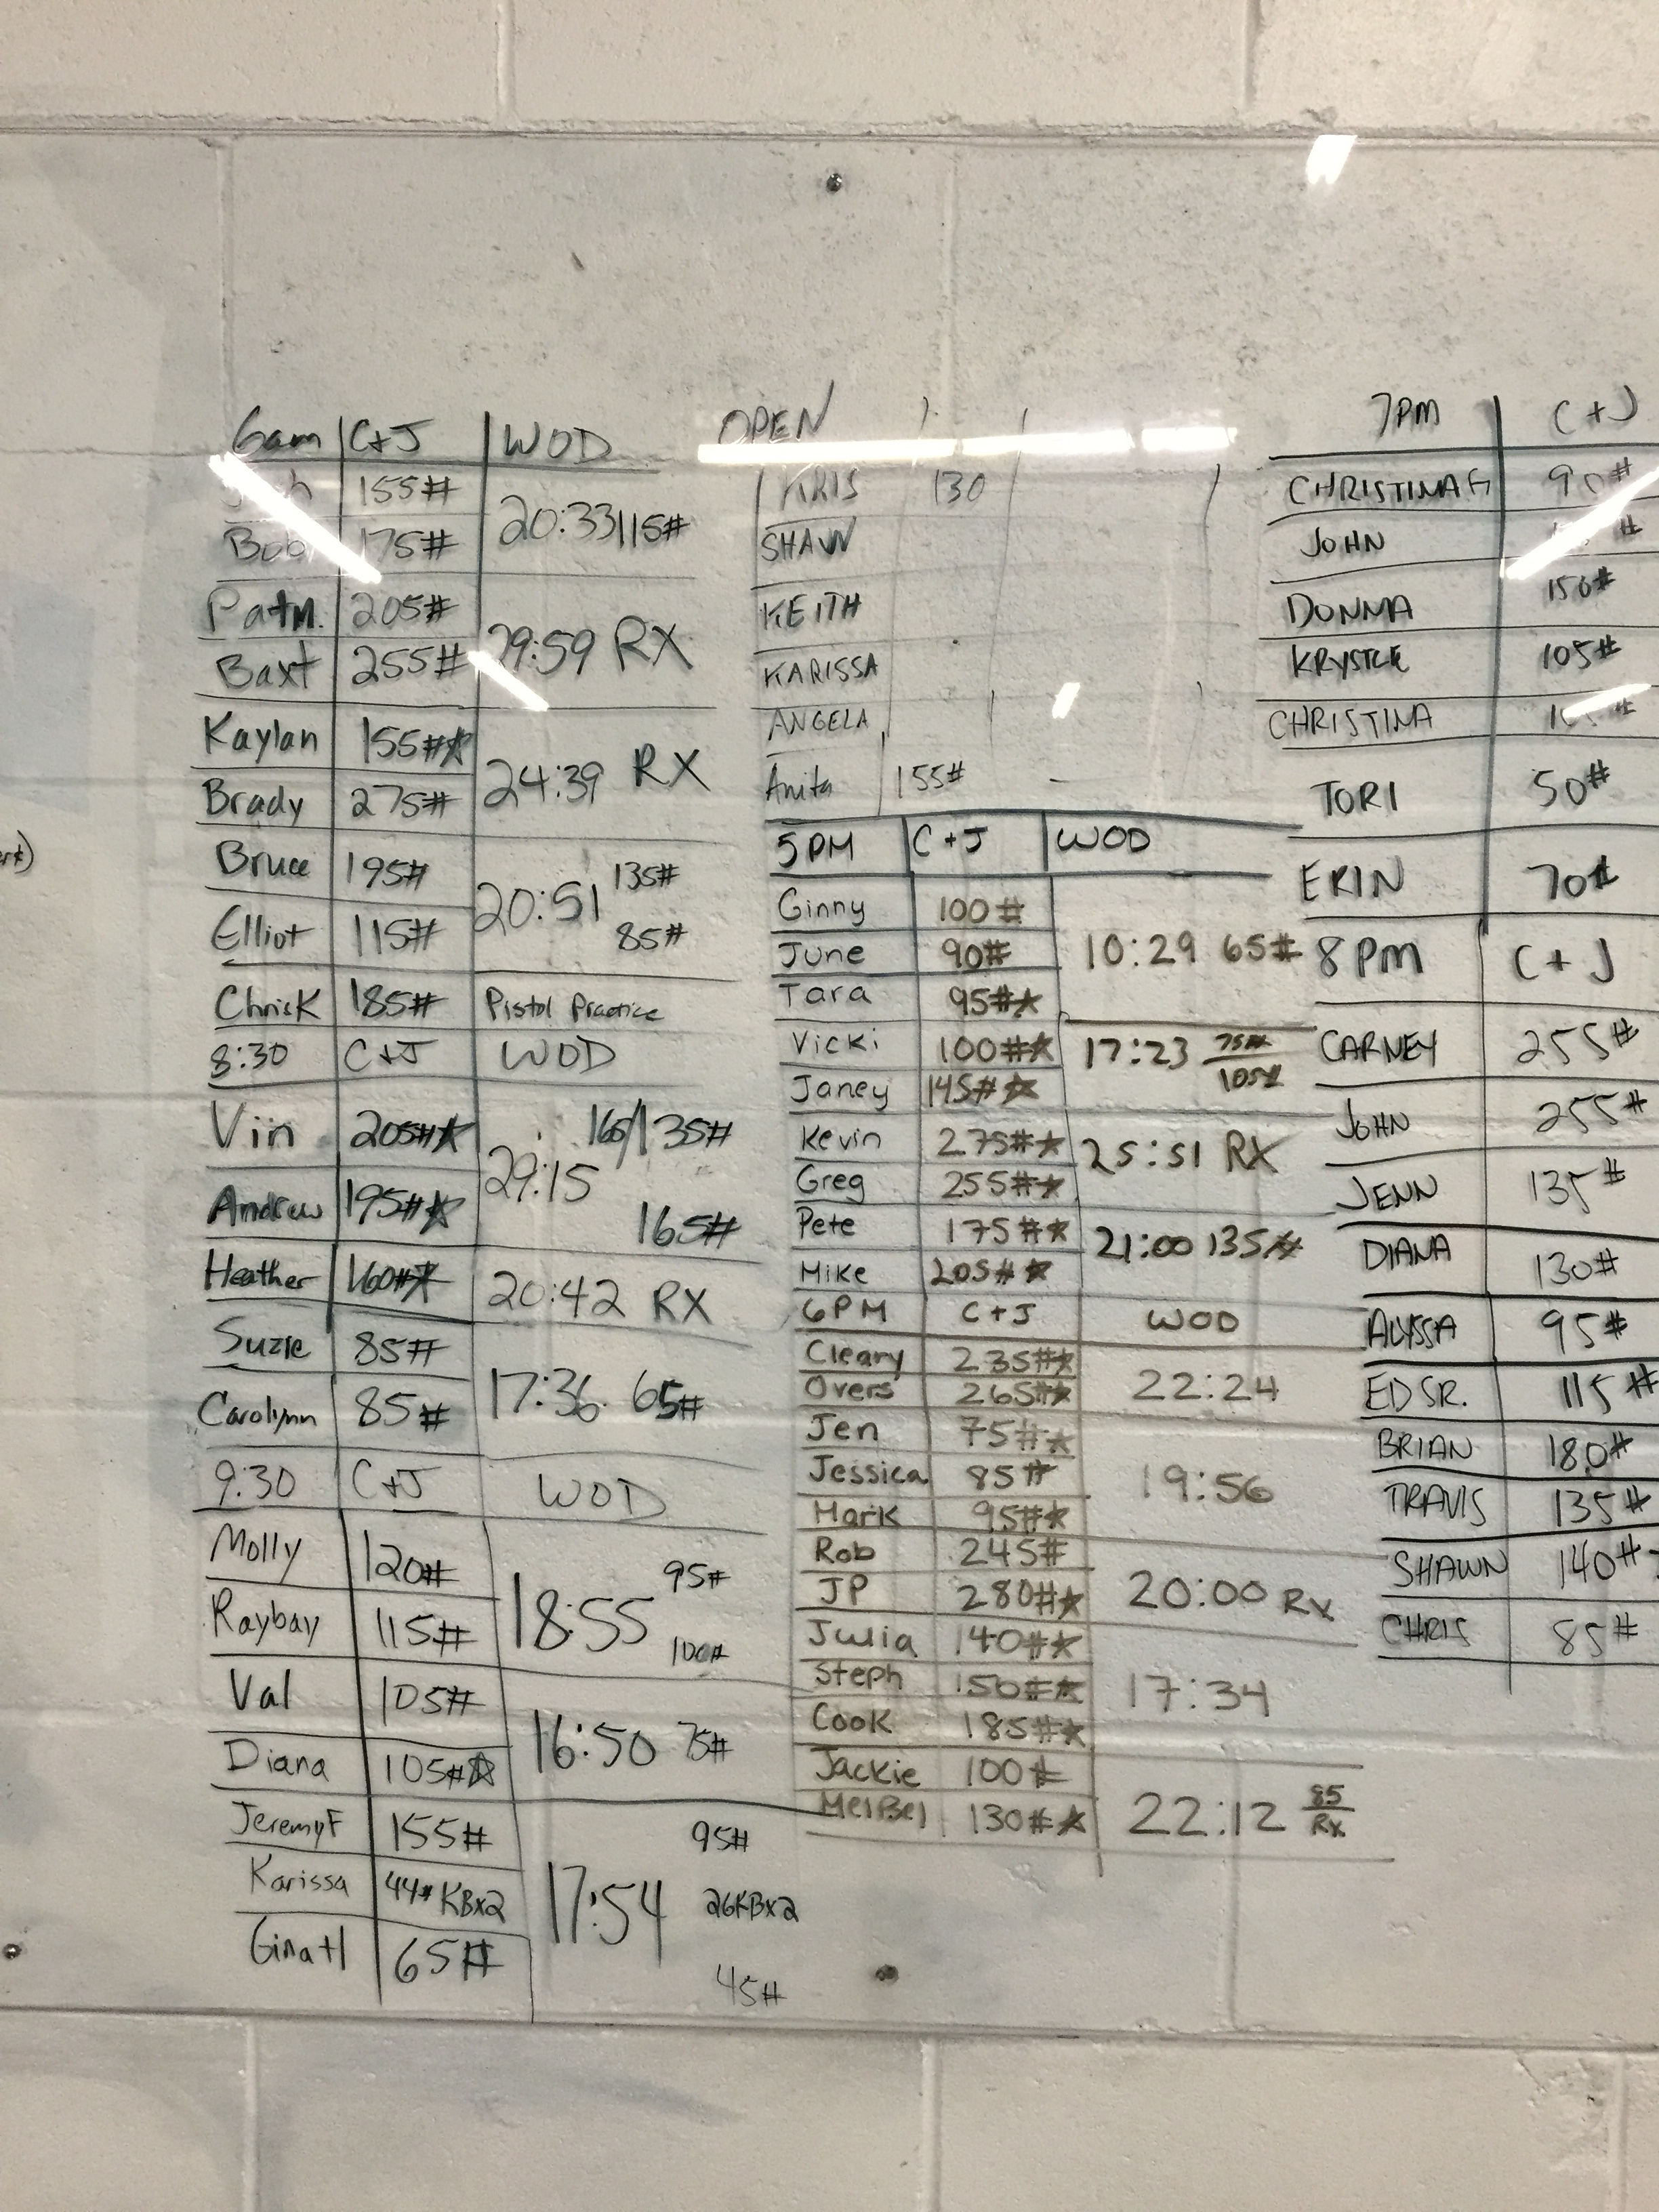 6am C+J WOD
155#
Bob 175#
20:33 115#
Pat M. 205#
Baxt 255#
29:59 RX
Kaylan 155#☆
Brady 275#
24:39 RX
Bruce 195#
Elliot 115#
20:51 135# 85#
Chris K 185# Pistol Practice
8:30 C+J WOD
Vin 205#☆
Andrew 195#☆
29:15 165/135# 165#
Heather 160#☆ 20:42 RX
Suzie 85#
Carolynn 85#
17:36 65#
9:30 C+J WOD
Molly 120#
Raybay 115#
18:55 95# 100#
Val 105#
Diana 105#☆
16:50 75#
Jeremy F 155#
Karissa 44# KBx2
Gina H 65#
17:54 95# 26KBx2 45#
OPEN
KRIS 130
SHAW
KEITH
KARISSA
ANGELA
Anita 155# –
5PM C+J WOD
Ginny 100#
June 90#
Tara 95#☆
10:29 65#
Vicki 100#☆
Janey 145#☆
17:23 75# 105#
Kevin 275#☆
Greg 255#☆
25:51 RX
Pete 175#☆
Mike 205#☆
21:00 135#
6PM C+J WOD
Cleary 235#☆
Overs 265#☆
22:24
Jen 75#☆
Jessica 85#
Mark 95#☆
19:56
Rob 245#
JP 280#☆
20:00 Rx
Julia 140#☆
Steph 150#☆
Cook 185#☆
17:34
Jackie 100#
MelBel 130#☆
22:12 85 Rx
7PM C+J
CHRISTINA G 90#
JOHN #
DONNA 150#
KRYSTLE 105#
CHRISTINA
TORI 50#
ERIN 70#
8PM C+J
CARNEY 255#
JOHN 255#
JENN 135#
DIANA 130#
ALYSSA 95#
ED SR. 115#
BRIAN 180#
TRAVIS 135#
SHAWN 140#
CHRIS 85#